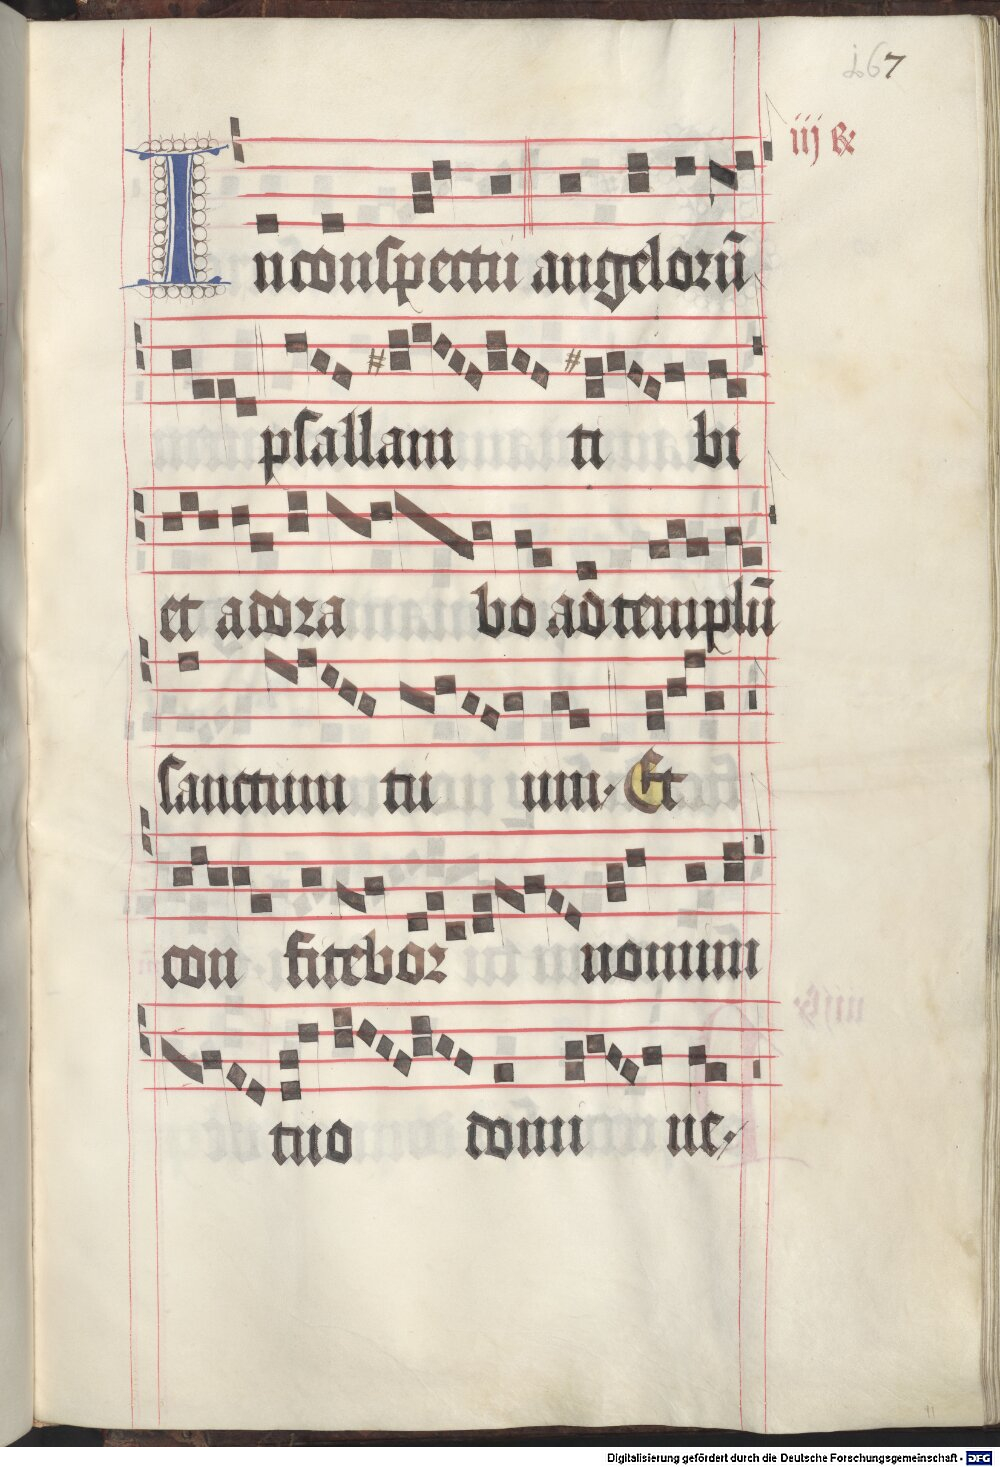 167
iij R
In conspectu angelorū
psallam ti bi
et adora bo ad templū
sanctum tu um. Et
con fitebor nomini
tuo domi ne.
Digitalisierung gefördert durch die Deutsche Forschungsgemeinschaft - DFG